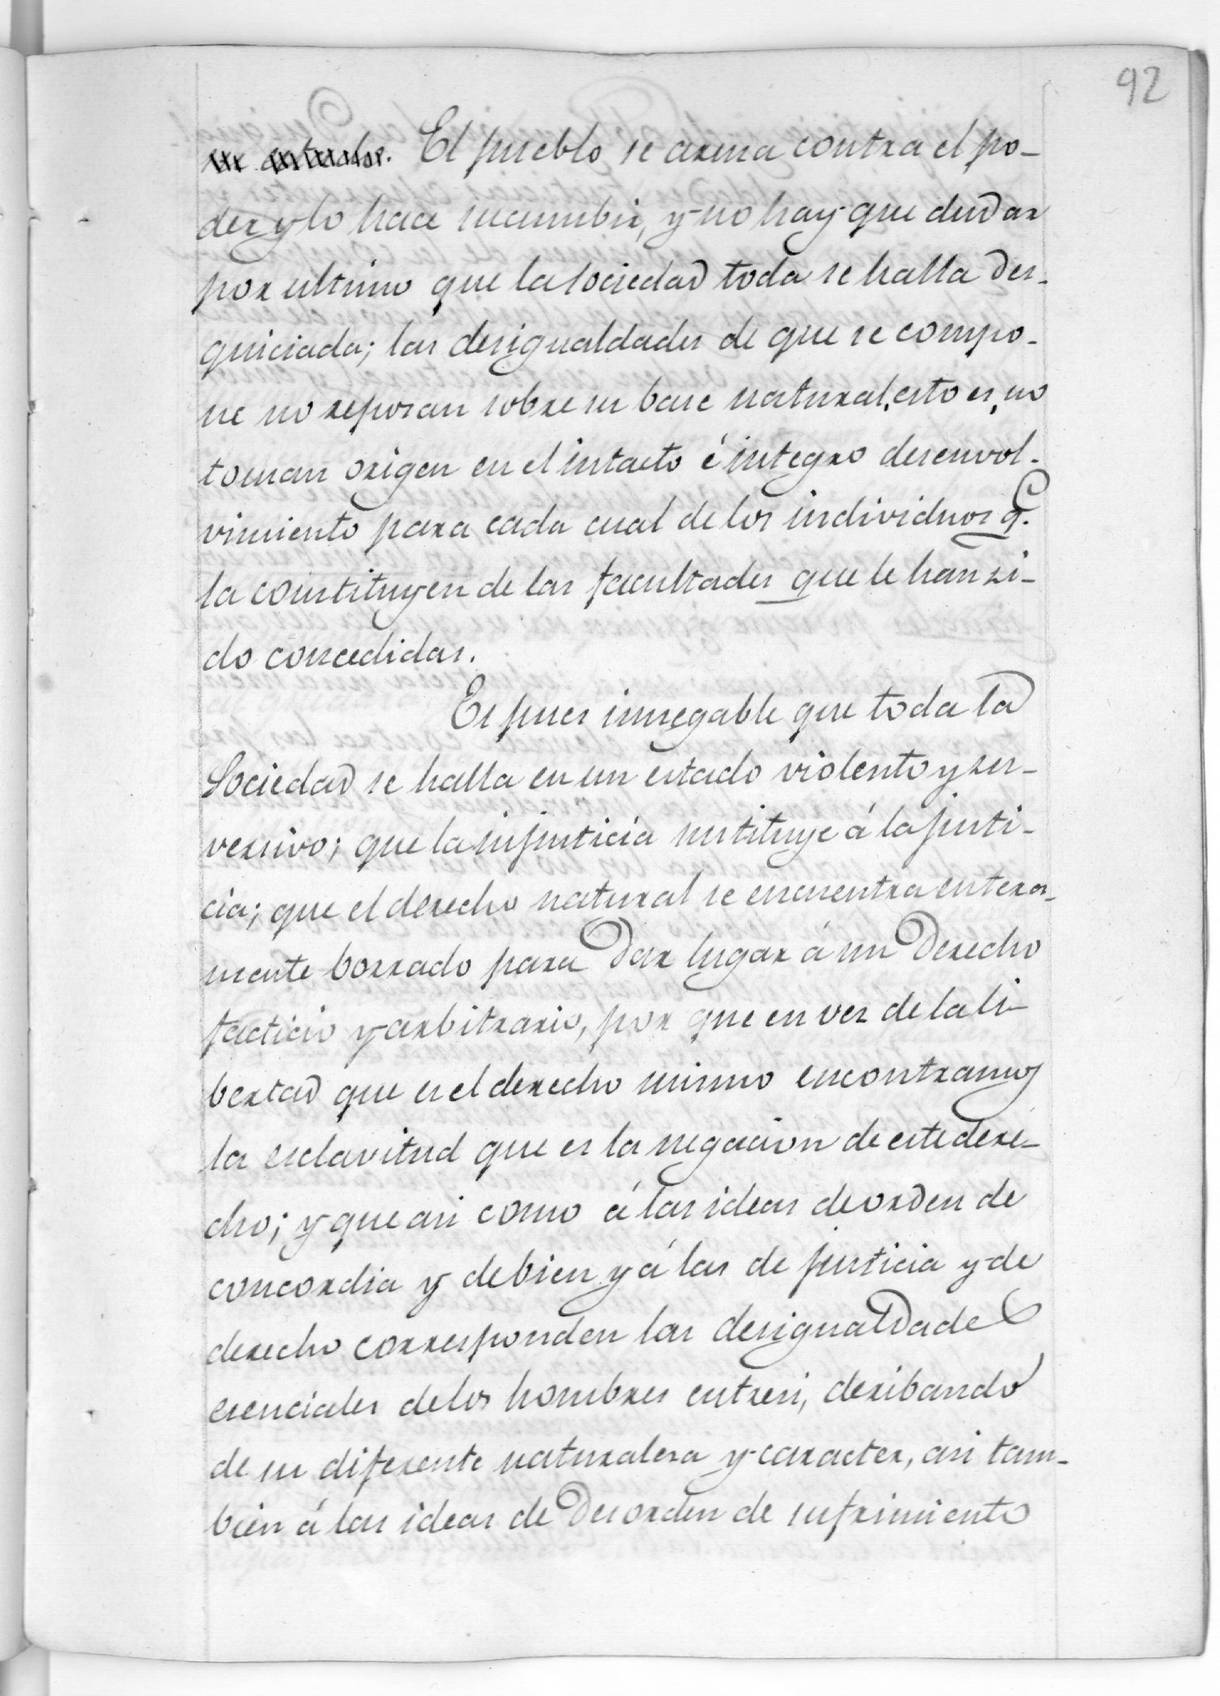 92
El pueblo se arma contra el po-
der y lo hace sucumbir, y no hay que dudar
por ultimo que la sociedad toda se halla des-
quiciada; las desigualdades de que se compo-
ne no reposan sobre su base natural, esto es, no
toman origen en el intacto é integro desenvol-
vimiento para cada cual de los individuos q.e
la constituyen de las facultades que le han si-
do concedidas.
Es pues innegable que toda la
Sociedad se halla en un estado violento y sub-
versivo; que la injusticia sustituye á la justi-
cia; que el derecho natural se encuentra entera-
mente borrado para dar lugar á un Derecho
facticio y arbitrario, por que en vez de la li-
bertad que es el derecho mismo encontramos
la esclavitud que es la negacion de este dere-
cho; y que asi como á las ideas de orden de
concordia y de bien y á las de justicia y de
derecho corresponden las desigualdades
esenciales de los hombres entresi, deribando
de su diferente naturaleza y caracter, asi tam-
bien á las ideas de Desorden de sufrimiento